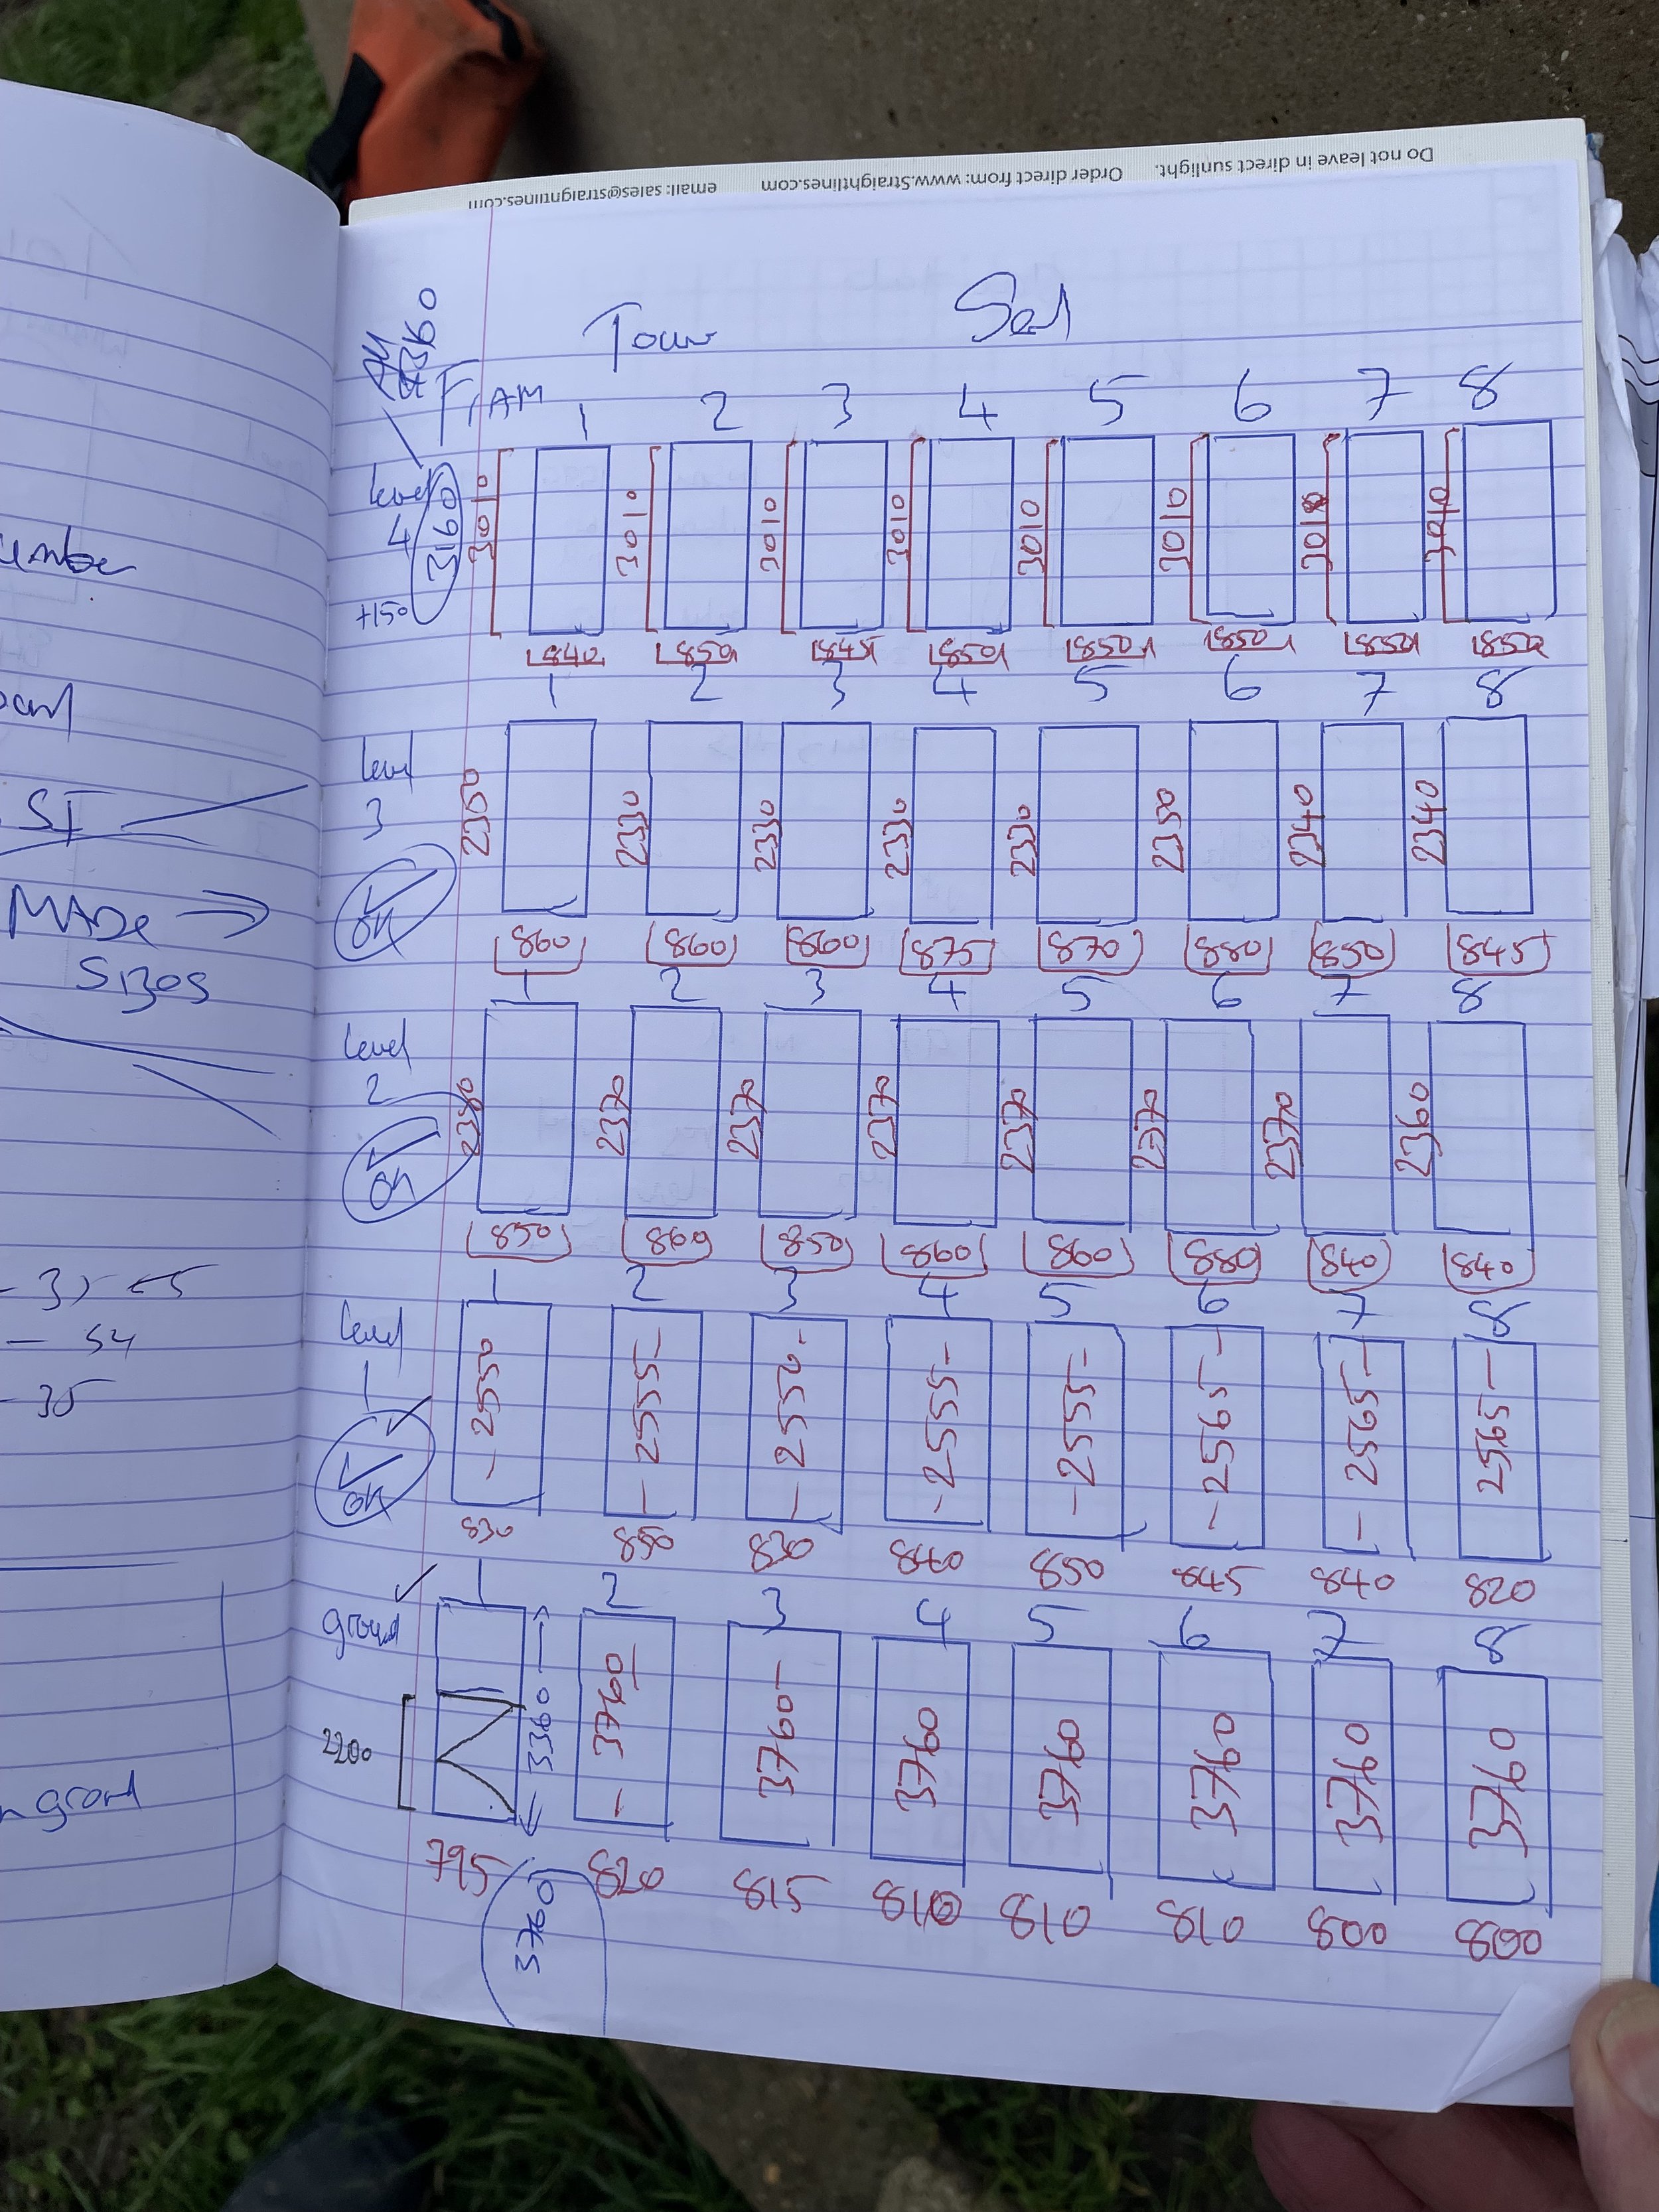 Do not leave in direct sunlight. Order direct from: www.Straightlines.com email: sales@straightlines.com
3160
Tower Sed
FrAM
1 2 3 4 5 6 7 8
level 4 +150 3160
3010 3010 3010 3010 3010 3010 3010 3010
840 850 845 850 850 850 850 850
1 2 3 4 5 6 7 8
level 3
2350 2330 2330 2330 2330 2350 2340 2340
OK
860 860 860 875 870 880 850 845
1 2 3 4 5 6 7 8
level 2
2380 2370 2370 2370 2370 2370 2370 2360
OK
850 860 850 860 860 880 840 840
1 2 3 4 5 6 7 8
level 1
-2550 -2555- -2550- -2555- -2555- -2565- -2565- 2565-
OK
830 850 830 840 850 845 840 820
1 2 3 4 5 6 7 8
ground
2200 3360 3760 3760- 3760 3760 3760 3760 3760
795 820 815 810 810 810 800 800
3760
MADE
SIZES
- 54
- 35
ground